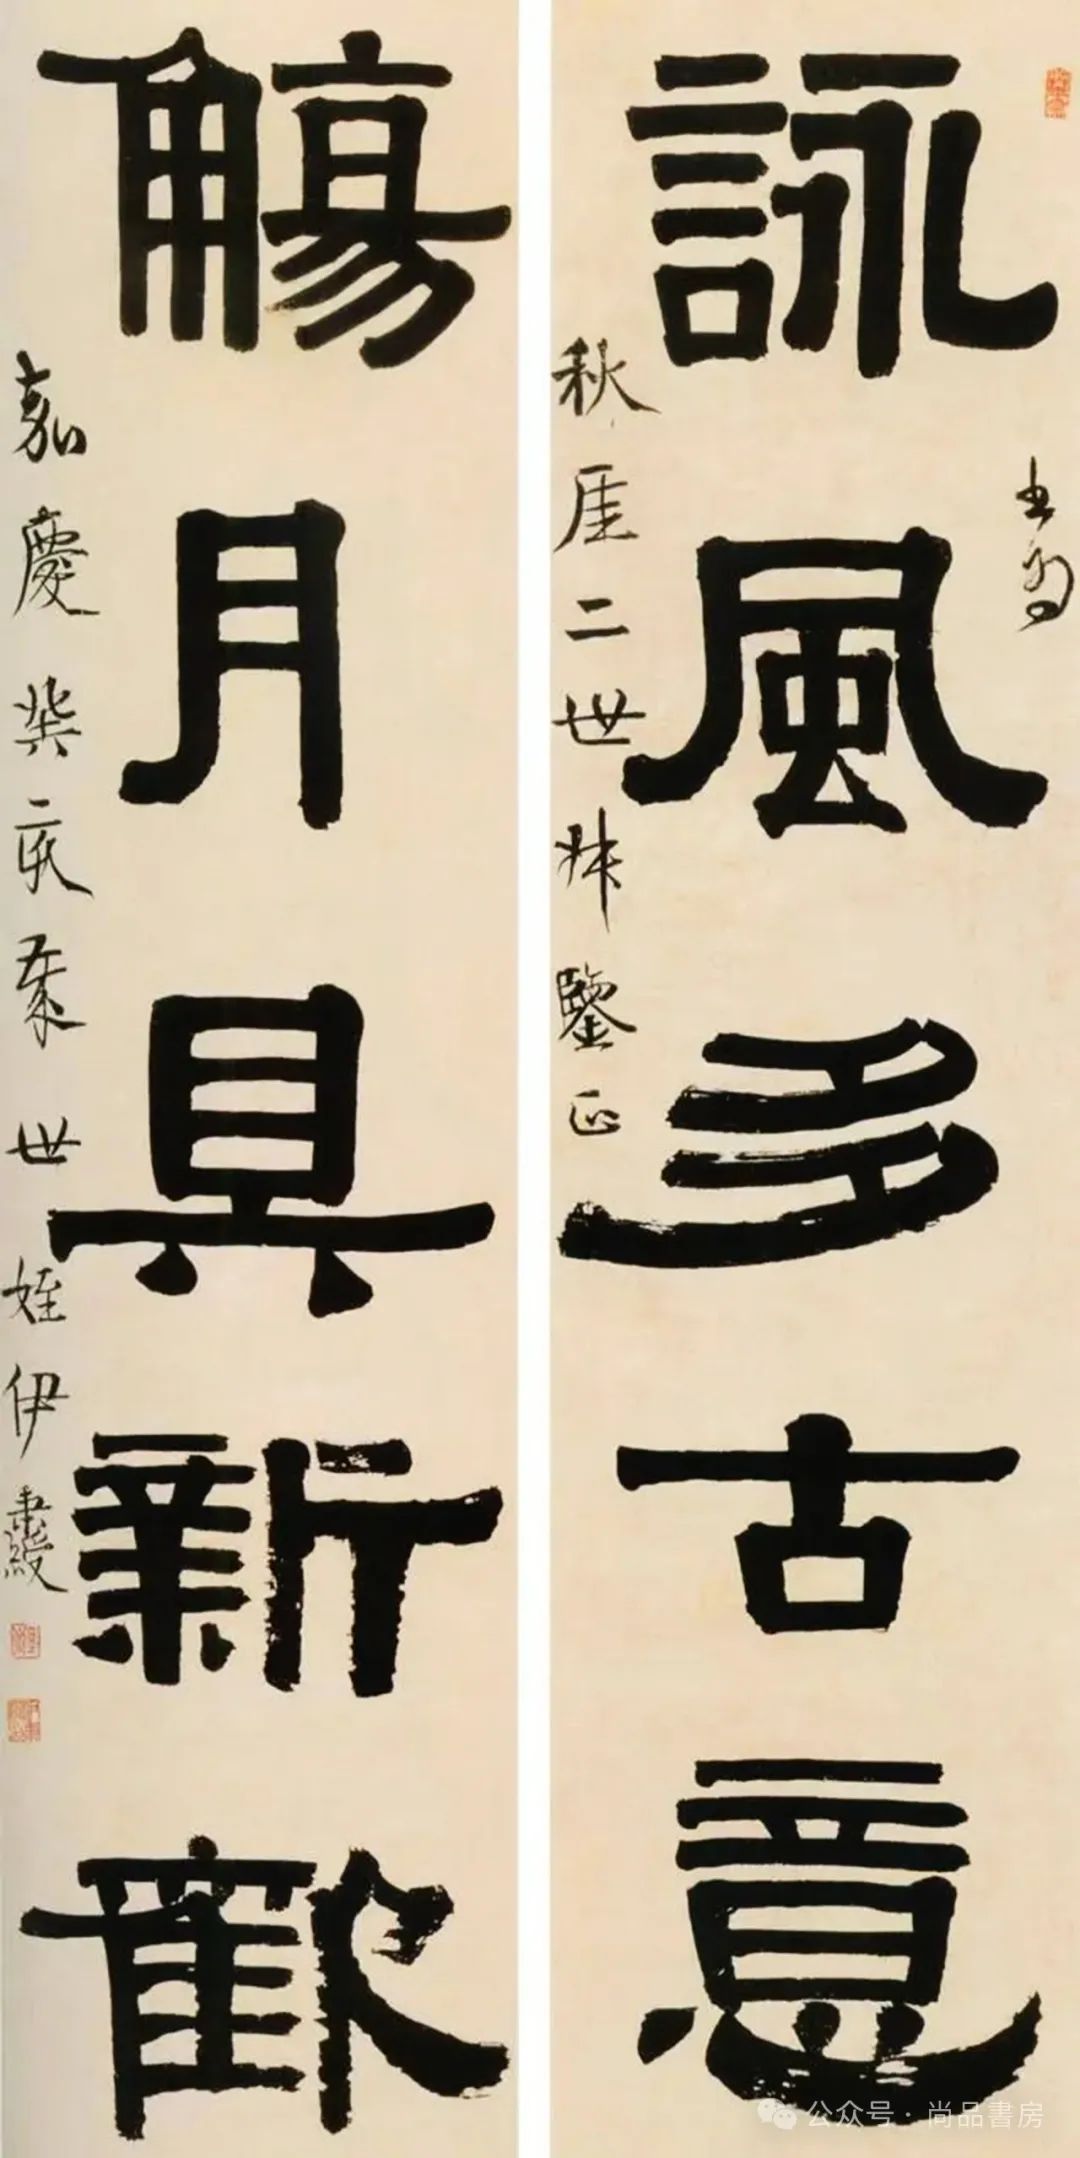 詠風多古意
書為
秋厓二世叔鑒正
觴月具新歡
嘉慶癸亥春世姪伊秉綬
公众号·尚品書房